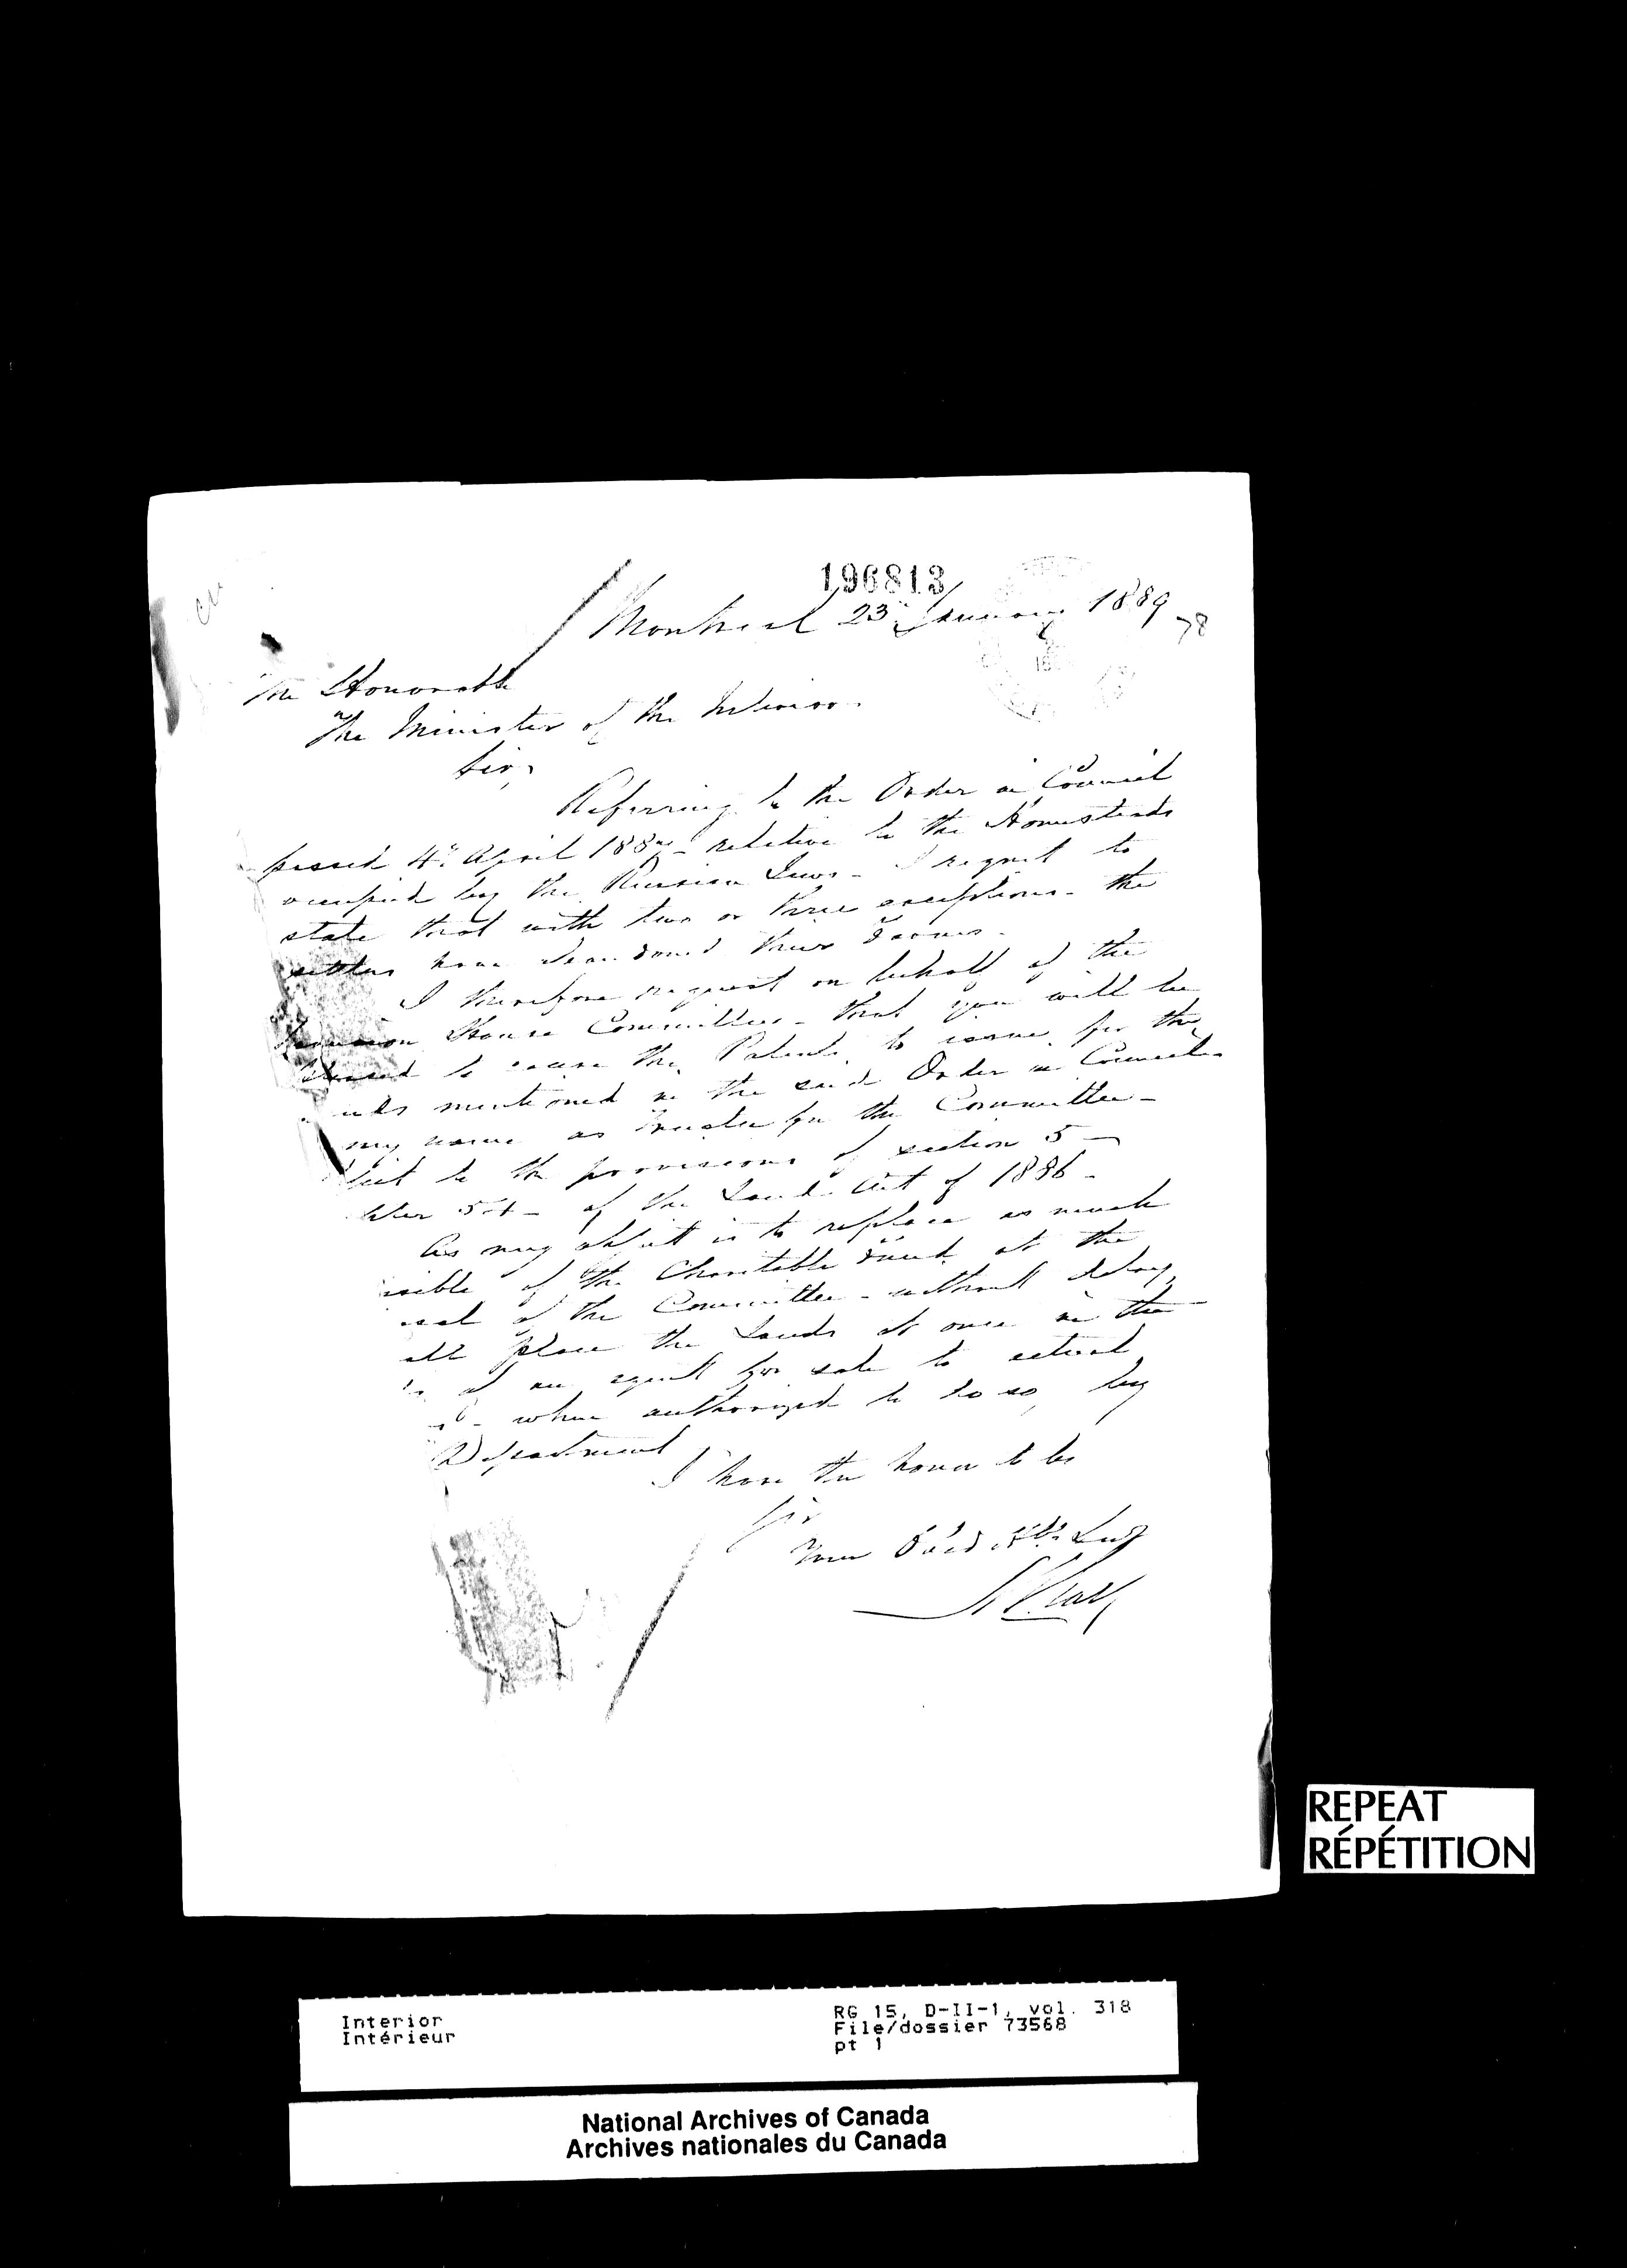 196813
Montreal 23d January 1889
78
The Honorable
The Minister of the Interior.
Sir,
Referring to the Order in Council
passed 4th April 188 relative to the Homesteads
occupied by the Russian Jews - I regret to
state that with two or three exceptions - the
settlers have abandoned their Farms -
I therefore request on behalf of the
Mansion House Committee - that you will be
pleased to cause the Patents to issue for the
mentioned in the said Order in Council
my name as Trustee for the Committee -
ject to the provisions of section 5 -
pter 54 - of the Lands Act of 1886 -
As my object is to replace as much
ssible of the Charitable Fund at the
osal of the Committee - without delay,
all place the Lands at once in the
of an agent for sale to actual
- when authorized to do so, by
Department
I have the honor to be
Sir
Your Obed Sert
REPEAT
RÉPÉTITION
Interior
Intérieur
RG 15, D-II-1, vol. 318
File/dossier 73568
pt 1
National Archives of Canada
Archives nationales du Canada